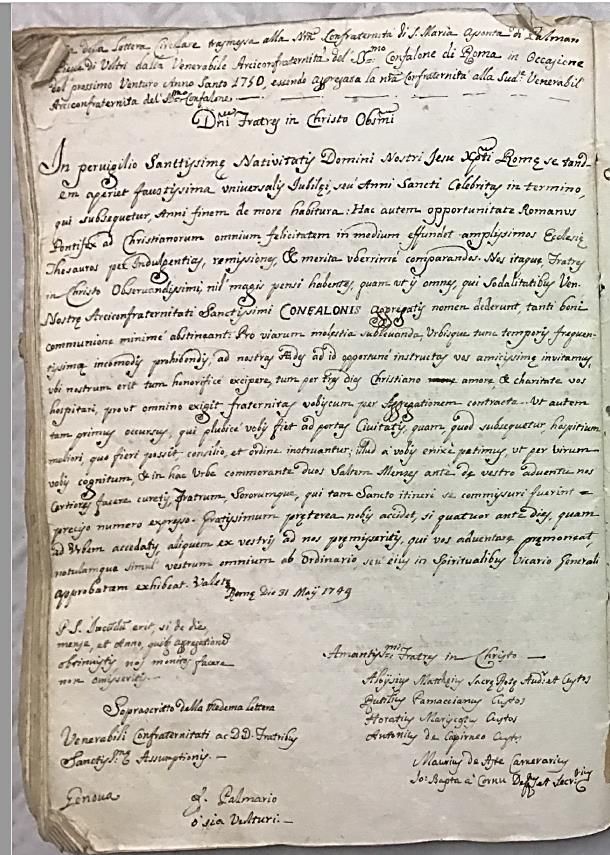 della Lettera Circolare trasmessa alla Nr̃a Confraternità di S. Maria Assonta di Palmaro
Pieve di Veltri dalla Venerabile Arciconfraternita del SS.mo Confalone di Roma in Occasione
del prossimo Venturo Anno Santo 1750, essendo aggregata la nr̃a Confraternità alla Sud.a Venerabil
Arciconfraternita del SS.mo Confalone.
Dn̄i Fratres in Christo Obsm̄i
In pervigilio Sanctissimę Nativitatis Domini Nostri Jesu Xp̄ti Romę se tand-
em aperiet faustissima universalis Jubilęi, seu Anni Sancti Celebritas in termino,
qui subsequetur, Anni finem de more habitura: Hac autem opportunitate Romanus
Pontifex ad Christianorum omnium felicitatem in medium effundet amplissimos Ecclesię
Thesauros per Indulgentias, remissiones, & merita uberrimè comparandos. Nos itaque, Fratres
in Christo Observandissimi, nil magis pensi habentes, quam ut ij omnes, qui Sodalitatibus Ven.
Nostrę Arciconfraternitati Sanctissimi CONFALONIS aggregatis nomen dederunt, tanti boni
communione minimè abstineant: Pro viarum molestia sublevanda, Urbisque tunc temporis frequen-
tissimę incomodis prohibendis, ad nostras Ędes ad id opportunè instructas vos amicissimè invitamus,
ubi nostrum erit tum honorificè excipere, tum per tres dies Christiano amore & charitate vos
hospitari, prout omnino exigit fraternitas vobiscum per Aggregationem contracta. Ut autem
tam primus occursus, qui plubicè vobis fiet ad portas Civitatis, quam quod subsequetur hospitium
meliori quo fieri possit consilio, et ordine instruantur; illud à vobis enixè petimus, ut per virum
vobis cognitum, & in hac Urbe commorante duos Saltem Menses antè de vestro adventu nos
Certiores facere curetis, Fratrum, Sororumque, qui tam Sancto itineri se commissuri fuerint =
preciso numero expresso. Gratissimum pręterea nobis accidet, si quatuor antè dies, quam
ad Urbem accedatis aliquem ex vestris ad nos pręmiseritis, qui vos adventare pręmoneat,
notulamque simul vestrum omnium ab Ordinario seu eius in Spiritualibus Vicario Generali
approbatam exhibeat. Valete
Romę die 31 Maÿ 1749
P. S. erit, si de die
mense, et Anno, quibus agregationem
obtinuistis nos monitos facere
non omiseritis.
Amantiss.mi Fratres in Christo
Aloysius Mattheius Sacrę Rotę Audit. et Custos
Rutilius Pamaccianus Custos
Horatius Custos
Antonius de Capirneo Custos
Maurius de Aste Camerarius
Jo: Bapta à Cornu Secrius
Soprascritto della medema lettera
Venerabili Confraternitati ac DD. Fratribus
Sanctiss.mę Assumptionis.
Genova
Palmario
ò sia Vulturi.